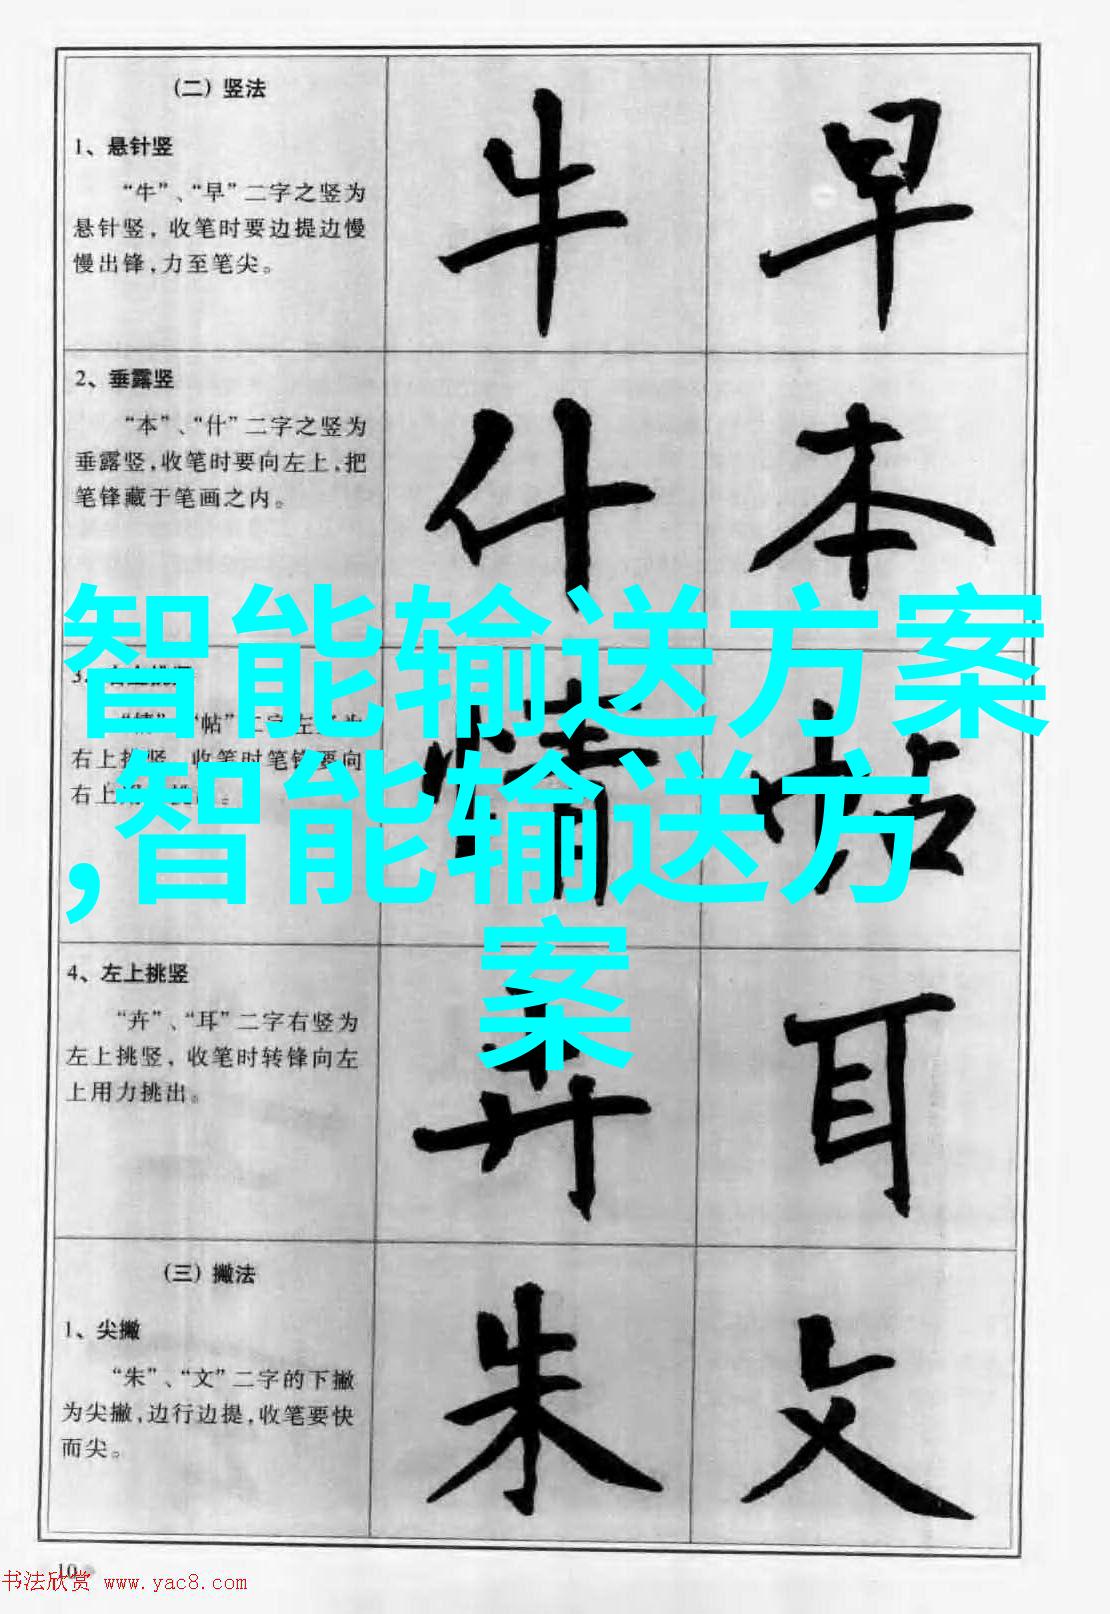 (二) 竖法
1、悬针竖
“牛”、“早”二字之竖为
悬针竖，收笔时要边提边慢
慢出锋，力至笔尖。
牛 早
2、垂露竖
“本”、“什”二字之竖为
垂露竖，收笔时要向左上，把
笔锋藏于笔画之内。
什 本
智能输送方案
,智能输送方
案
“帖”二字左
右上 竖，收笔时笔锋要向
右上
情 帖
4、左上挑竖
“卉”、“耳”二字右竖为
左上挑竖，收笔时转锋向左
上用力挑出。
卉 耳
(三) 撇法
1、尖撇
“朱”、“文”二字的下撇
为尖撇，边行边提，收笔要快
而尖。
朱 文
10
书法欣赏 www.yac8.com